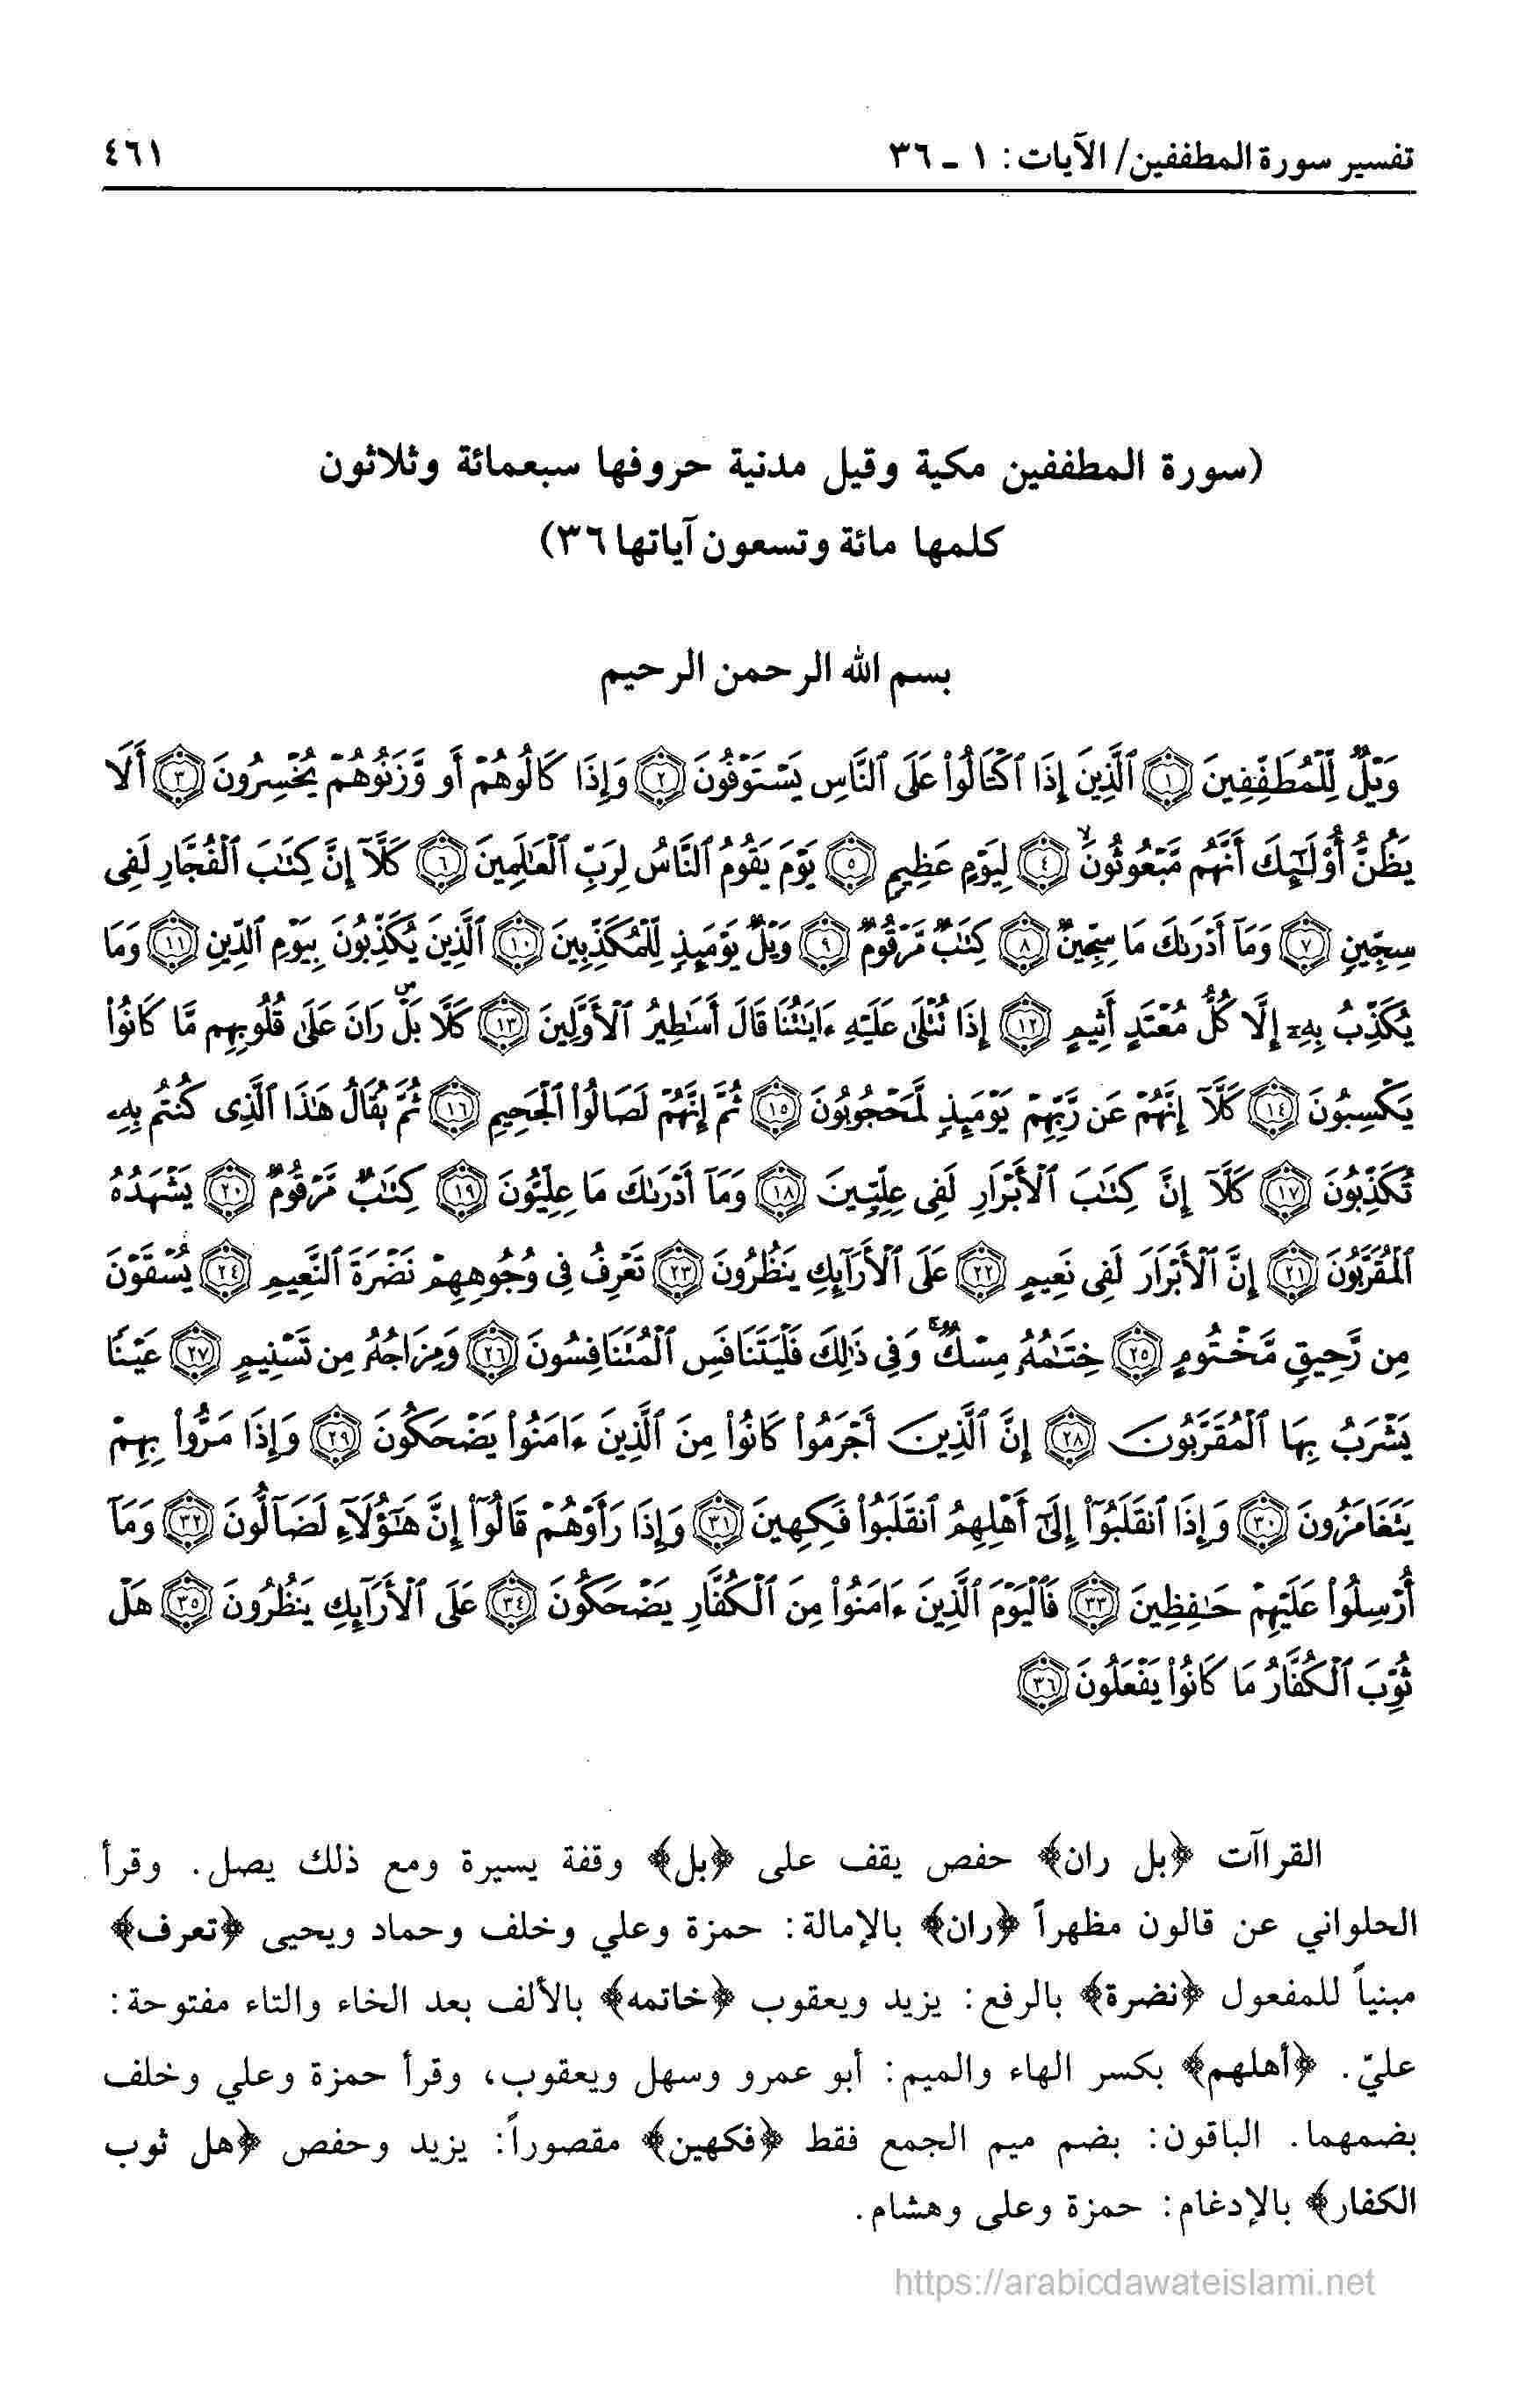 تفسير سورة المطففين/ الآيات: ١ ـ ٣٦
٤٦١
(سورة المطففين مكية وقيل مدنية حروفها سبعمائة وثلاثون
كلمها مائة وتسعون آياتها ٣٦)
بسم الله الرحمن الرحيم
وَيْلٌ لِّلْمُطَفِّفِينَ ۝١ ٱلَّذِينَ إِذَا ٱكْتَالُوا۟ عَلَى ٱلنَّاسِ يَسْتَوْفُونَ ۝٢ وَإِذَا كَالُوهُمْ أَو وَّزَنُوهُمْ يُخْسِرُونَ ۝٣ أَلَا
يَظُنُّ أُو۟لَٰٓئِكَ أَنَّهُم مَّبْعُوثُونَ ۝٤ لِيَوْمٍ عَظِيمٍ ۝٥ يَوْمَ يَقُومُ ٱلنَّاسُ لِرَبِّ ٱلْعَٰلَمِينَ ۝٦ كَلَّآ إِنَّ كِتَٰبَ ٱلْفُجَّارِ لَفِى
سِجِّينٍ ۝٧ وَمَآ أَدْرَىٰكَ مَا سِجِّينٌ ۝٨ كِتَٰبٌ مَّرْقُومٌ ۝٩ وَيْلٌ يَوْمَئِذٍ لِّلْمُكَذِّبِينَ ۝١٠ ٱلَّذِينَ يُكَذِّبُونَ بِيَوْمِ ٱلدِّينِ ۝١١ وَمَا
يُكَذِّبُ بِهِۦٓ إِلَّا كُلُّ مُعْتَدٍ أَثِيمٍ ۝١٢ إِذَا تُتْلَىٰ عَلَيْهِ ءَايَٰتُنَا قَالَ أَسَٰطِيرُ ٱلْأَوَّلِينَ ۝١٣ كَلَّا بَلْۜ رَانَ عَلَىٰ قُلُوبِهِم مَّا كَانُوا۟
يَكْسِبُونَ ۝١٤ كَلَّآ إِنَّهُمْ عَن رَّبِّهِمْ يَوْمَئِذٍ لَّمَحْجُوبُونَ ۝١٥ ثُمَّ إِنَّهُمْ لَصَالُوا۟ ٱلْجَحِيمِ ۝١٦ ثُمَّ يُقَالُ هَٰذَا ٱلَّذِى كُنتُم بِهِۦ
تُكَذِّبُونَ ۝١٧ كَلَّآ إِنَّ كِتَٰبَ ٱلْأَبْرَارِ لَفِى عِلِّيِّينَ ۝١٨ وَمَآ أَدْرَىٰكَ مَا عِلِّيُّونَ ۝١٩ كِتَٰبٌ مَّرْقُومٌ ۝٢٠ يَشْهَدُهُ
ٱلْمُقَرَّبُونَ ۝٢١ إِنَّ ٱلْأَبْرَارَ لَفِى نَعِيمٍ ۝٢٢ عَلَى ٱلْأَرَآئِكِ يَنظُرُونَ ۝٢٣ تَعْرِفُ فِى وُجُوهِهِمْ نَضْرَةَ ٱلنَّعِيمِ ۝٢٤ يُسْقَوْنَ
مِن رَّحِيقٍ مَّخْتُومٍ ۝٢٥ خِتَٰمُهُۥ مِسْكٌ وَفِى ذَٰلِكَ فَلْيَتَنَافَسِ ٱلْمُتَنَٰفِسُونَ ۝٢٦ وَمِزَاجُهُۥ مِن تَسْنِيمٍ ۝٢٧ عَيْنًا
يَشْرَبُ بِهَا ٱلْمُقَرَّبُونَ ۝٢٨ إِنَّ ٱلَّذِينَ أَجْرَمُوا۟ كَانُوا۟ مِنَ ٱلَّذِينَ ءَامَنُوا۟ يَضْحَكُونَ ۝٢٩ وَإِذَا مَرُّوا۟ بِهِمْ
يَتَغَامَزُونَ ۝٣٠ وَإِذَا ٱنقَلَبُوٓا۟ إِلَىٰٓ أَهْلِهِمُ ٱنقَلَبُوا۟ فَكِهِينَ ۝٣١ وَإِذَا رَأَوْهُمْ قَالُوٓا۟ إِنَّ هَٰٓؤُلَآءِ لَضَآلُّونَ ۝٣٢ وَمَآ
أُرْسِلُوا۟ عَلَيْهِمْ حَٰفِظِينَ ۝٣٣ فَٱلْيَوْمَ ٱلَّذِينَ ءَامَنُوا۟ مِنَ ٱلْكُفَّارِ يَضْحَكُونَ ۝٣٤ عَلَى ٱلْأَرَآئِكِ يَنظُرُونَ ۝٣٥ هَلْ
ثُوِّبَ ٱلْكُفَّارُ مَا كَانُوا۟ يَفْعَلُونَ ۝٣٦
القراآت ﴿بل ران﴾ حفص يقف على ﴿بل﴾ وقفة يسيرة ومع ذلك يصل. وقرأ
الحلواني عن قالون مظهراً ﴿ران﴾ بالإمالة: حمزة وعلي وخلف وحماد ويحيى ﴿تعرف﴾
مبنياً للمفعول ﴿نضرة﴾ بالرفع: يزيد ويعقوب ﴿خاتمه﴾ بالألف بعد الخاء والتاء مفتوحة:
عليّ. ﴿أهلهم﴾ بكسر الهاء والميم: أبو عمرو وسهل ويعقوب، وقرأ حمزة وعلي وخلف
بضمهما. الباقون: بضم ميم الجمع فقط ﴿فكهين﴾ مقصوراً: يزيد وحفص ﴿هل ثوب
الكفار﴾ بالإدغام: حمزة وعلى وهشام.
https://arabicdawateislami.net